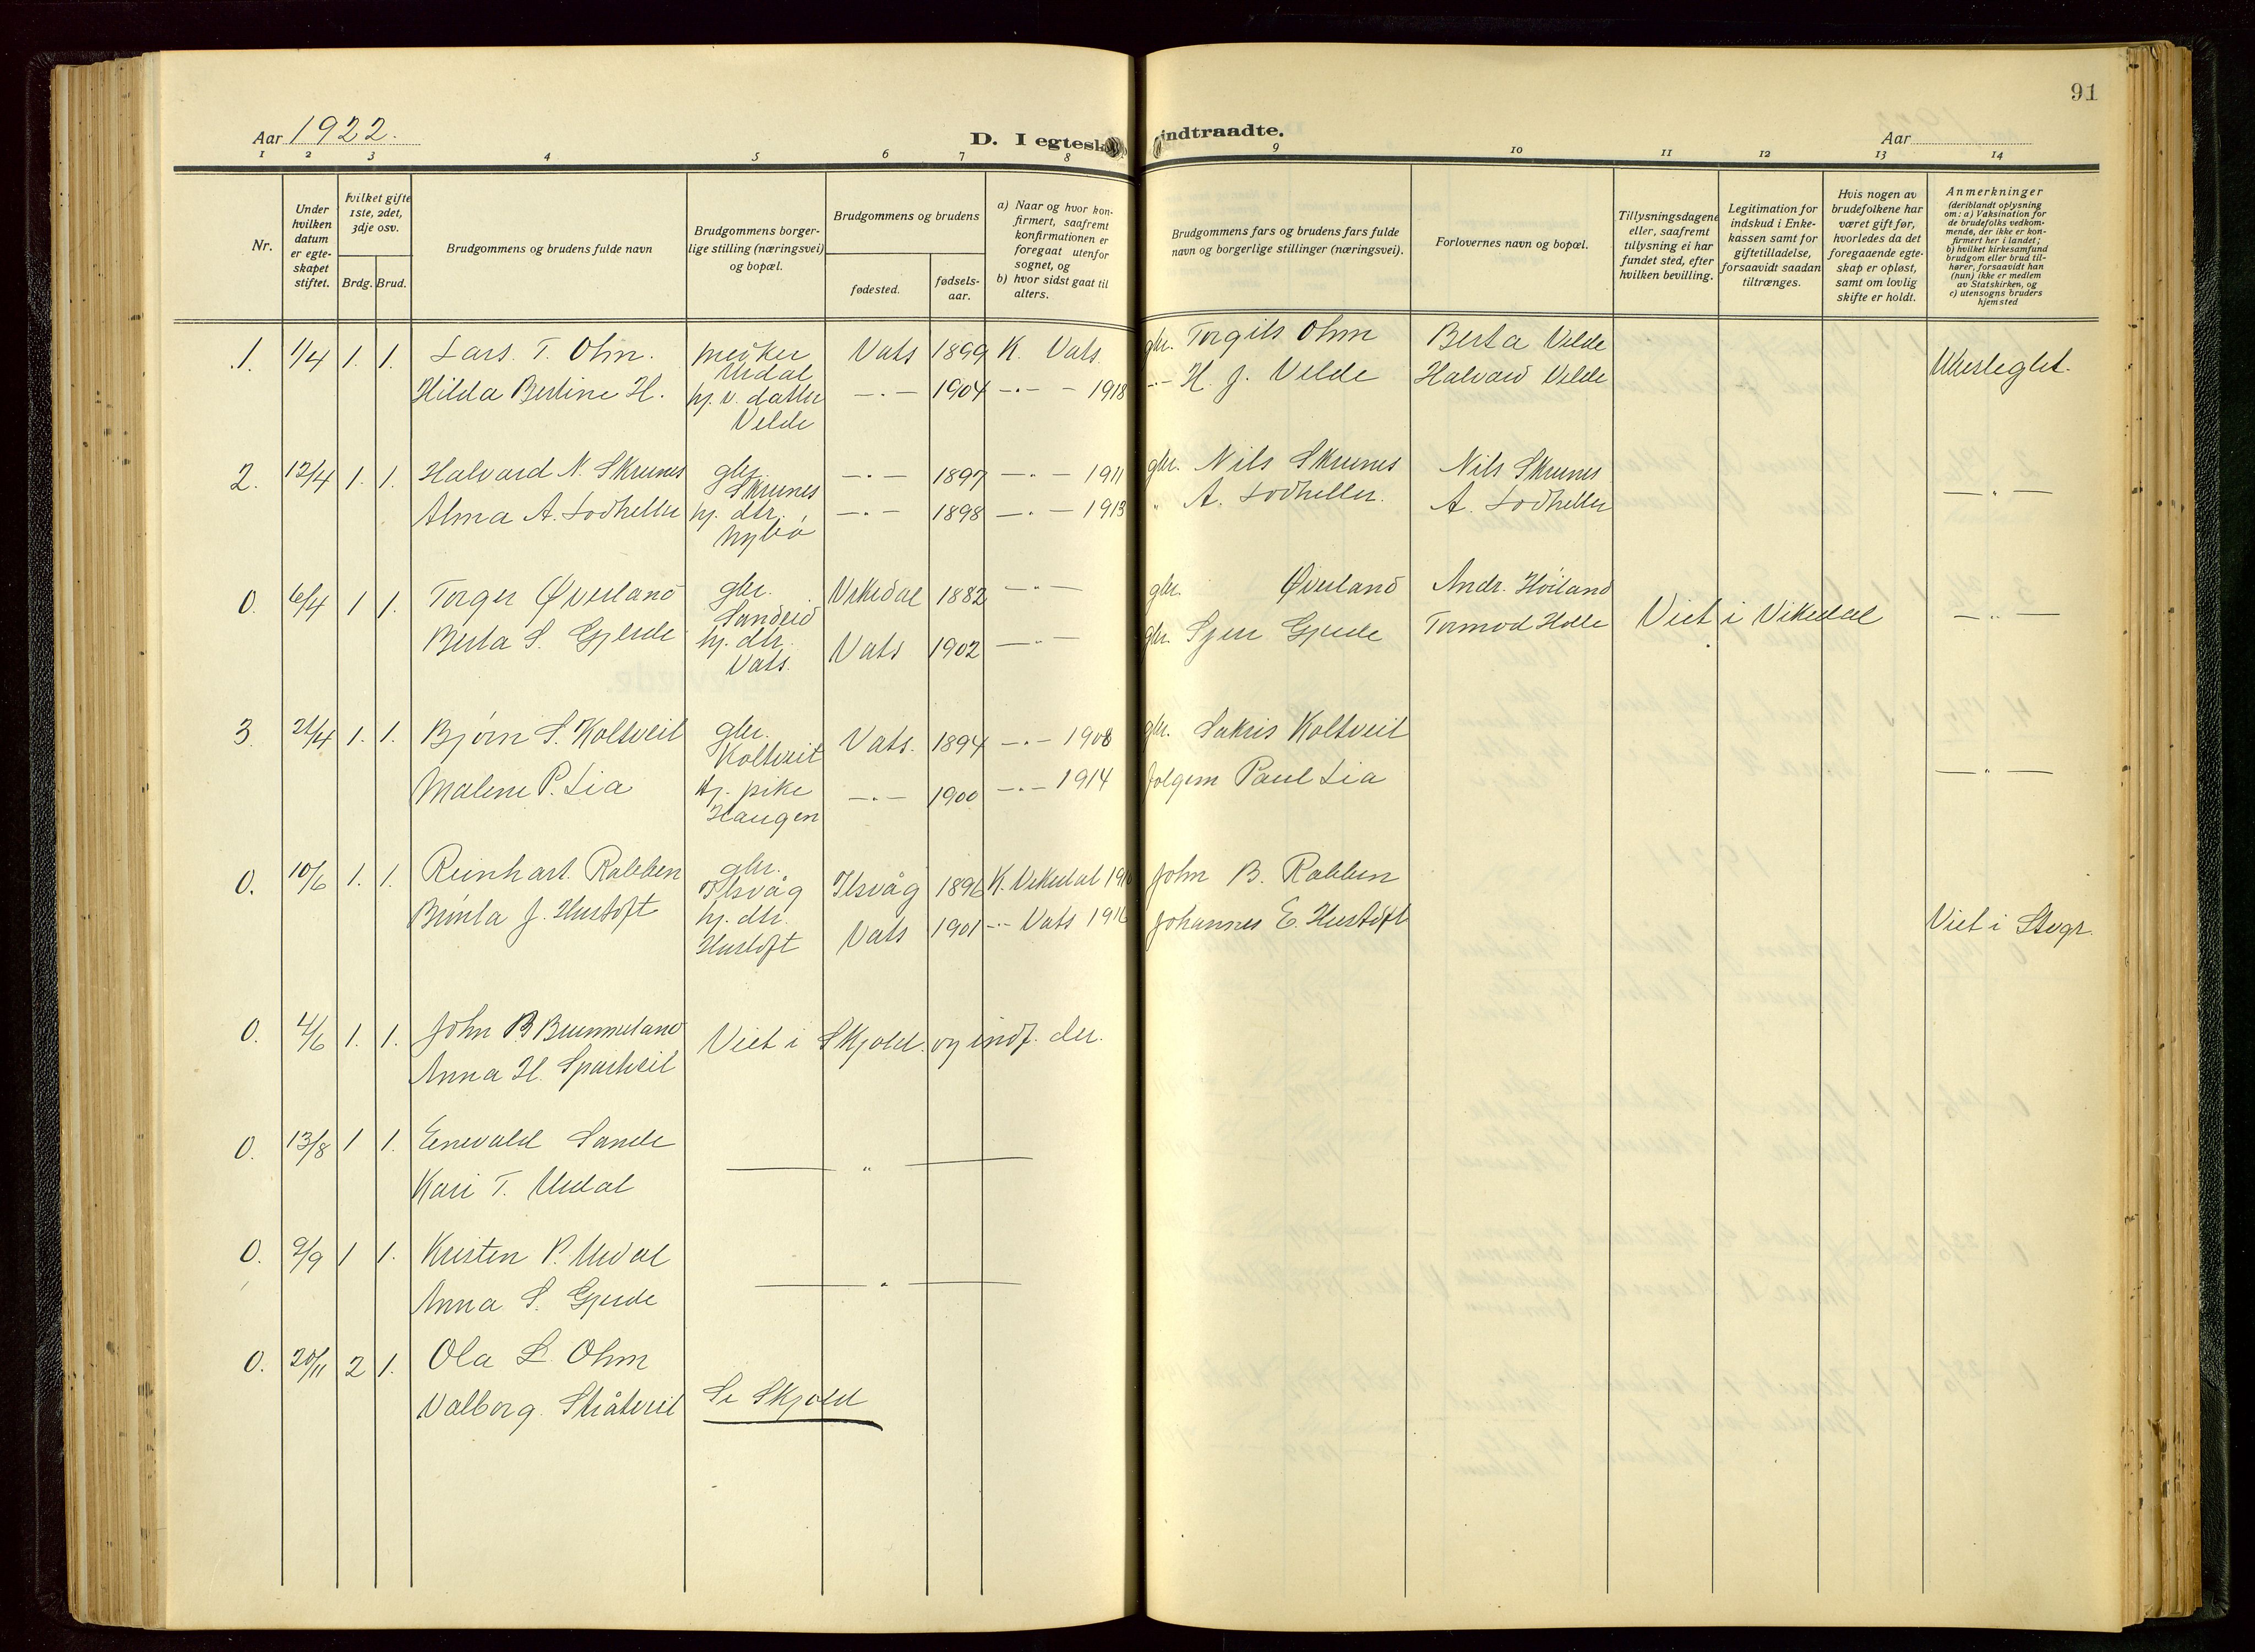 91
Aar 1922.
D. I egtesk
indtraadte.
Aar
1 2 3 4 5 6 7 8 9 10 11 12 13 14
Nr.
Under hvilken datum er egteskapet stiftet.
hvilket gifte 1ste, 2det, 3dje osv.
Brdg. Brud.
Brudgommens og brudens fulde navn
Brudgommens borgerlige stilling (næringsvei) og bopæl.
Brudgommens og brudens
fødested.
fødselsaar.
a) Naar og hvor konfirmert, saafremt konfirmationen er foregaat utenfor sognet, og
b) hvor sidst gaat til alters.
Brudgommens fars og brudens fars fulde navn og borgerlige stillinger (næringsvei).
Forlovernes navn og bopæl.
Tillysningsdagene eller, saafremt tillysning ei har fundet sted, efter hvilken bevilling.
Legitimation for indskud i Enkekassen samt for giftetilladelse, forsaavidt saadan tiltrænges.
Hvis nogen av brudefolkene har været gift før, hvorledes da det foregaaende egteskap er opløst, samt om lovlig skifte er holdt.
Anmerkninger
(deriblandt oplysning om: a) Vaksination for de brudefolks vedkommende, der ikke er konfirmert her i landet;
b) hvilket kirkesamfund brudgom eller brud tilhører, forsaavidt han (hun) ikke er medlem av Statskirken, og
c) utensogns bruders hjemsted
1. 1/4 1. 1. Lars. T. Ohm. Vats 1899 K. Vats. gbr. Torgils Ohm Berta Velde
Urdal
Hilda Bertine H. hj. v. datter —.— 1904 —.— 1918 —.— H. J. Velde Halvard Velde
Velde
2. 12/4 1. 1. Halvard N. Skrunes gbr. —.— 1897 —.— 1911 gbr. Nils Skrunes Nils Skrunes
Skrunes
Alma A. Lodheller hj. dtr. —.— 1898 —.— 1913 " A. Lodheller. A. Lodheller — " —
Nybø
0. 6/4 1 1. Torger Øverland gbr. Vikedal 1882 — " — gbr. Øverland Andr. Høiland
Sandeid
Berta S. Gjerde hj. dtr. Vats 1902 — " — gbr. Sjur Gjerde Tormod Holle Viet i Vikedal — " —
Vats.
3. 21/4 1. 1. Bjørn S. Koltveit gbr. Vats. 1894 —.— 1908 gbr. Sakris Koltveit
Koltveit
Malene P. Lia hj. pike —.— 1900 —.— 1914 Paul Lia — " —
Haugen
0. 10/6 1. 1. Reinhart. Rabben gbr. Ilsvåg 1896 K. Vikedal John B. Rabben
Ilsvåg
J. Hustoft hj. dtr. Vats 1901 —.— Vats 1916 Johannes E. Hustoft Viet i Stvgr.
Hustoft
0. 4/6 1. 1. John B Brummeland
Viet i Skjold. og indf. der.
Anna H.
0. 13/8 1 1. Enevald Sande
— " —
Kari T. Urdal
0. 9/9 1 1. Kristen P. Urdal
— " —
Anna S. Gjerde
0. 20/11 2 1. Ola L. Ohm
Valborg. Stråtveit Se Skjold